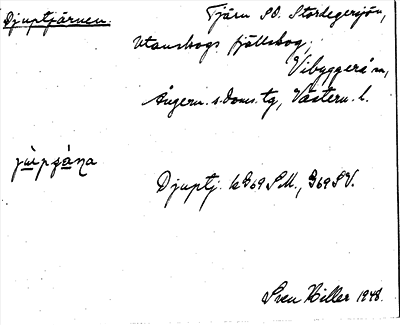 Djuptjärnen.
Tjärn SO. Stordegersjön,
Utanskogs fjällskog,
Vibyggerå sn,
Ångerm. s. doms. tg, Västern. l.
Djuptj. k G69 S.M., G69 S V.
Sven Hiller 1948.